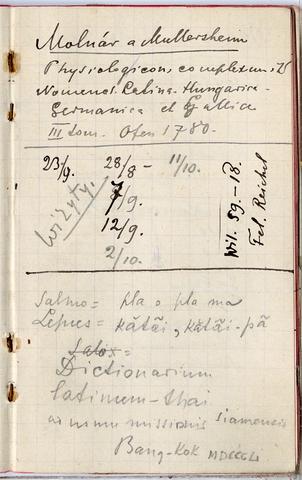 Molnár a Mullersheim
Physiologicon complexum
Nomencl. Latina-Hungarica-
Germanica et Gallica
III tom. Ofen 1780.
23/9. 28/8 - 11/10.
9/9.
12/9.
2/10.
Wizyty.
Wil. 59.-18.
Fel. Reichel
Salmo = pla o pla ma
Lepus = kătăi, kătăi-pã
Salox =
Dictionarium
latinum-thai
missionis siamensis
Bang-Kok MDCCCLI